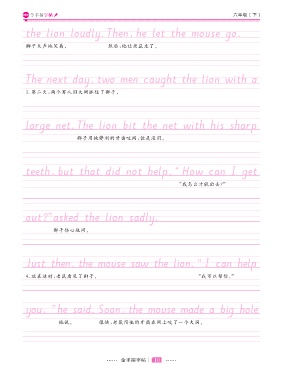 六年级（下）
the lion loudly. Then, he let the mouse go.
狮子大声地笑着。 然后，他让老鼠走了。
The next day, two men caught the lion with a
3.第二天，两个男人用大网抓住了狮子。
large net. The lion bit the net with his sharp
狮子用他锋利的牙齿咬网，但是没用。
teeth, but that did not help. "How can I get
"我怎么才能出去?"
out?" asked the lion sadly.
狮子伤心地问。
Just then, the mouse saw the lion. "I can help
4.就在这时，老鼠看见了狮子。 "我可以帮你。"
you," he said. Soon, the mouse made a big hole
他说。 很快，老鼠用他的牙齿在网上咬了一个大洞。